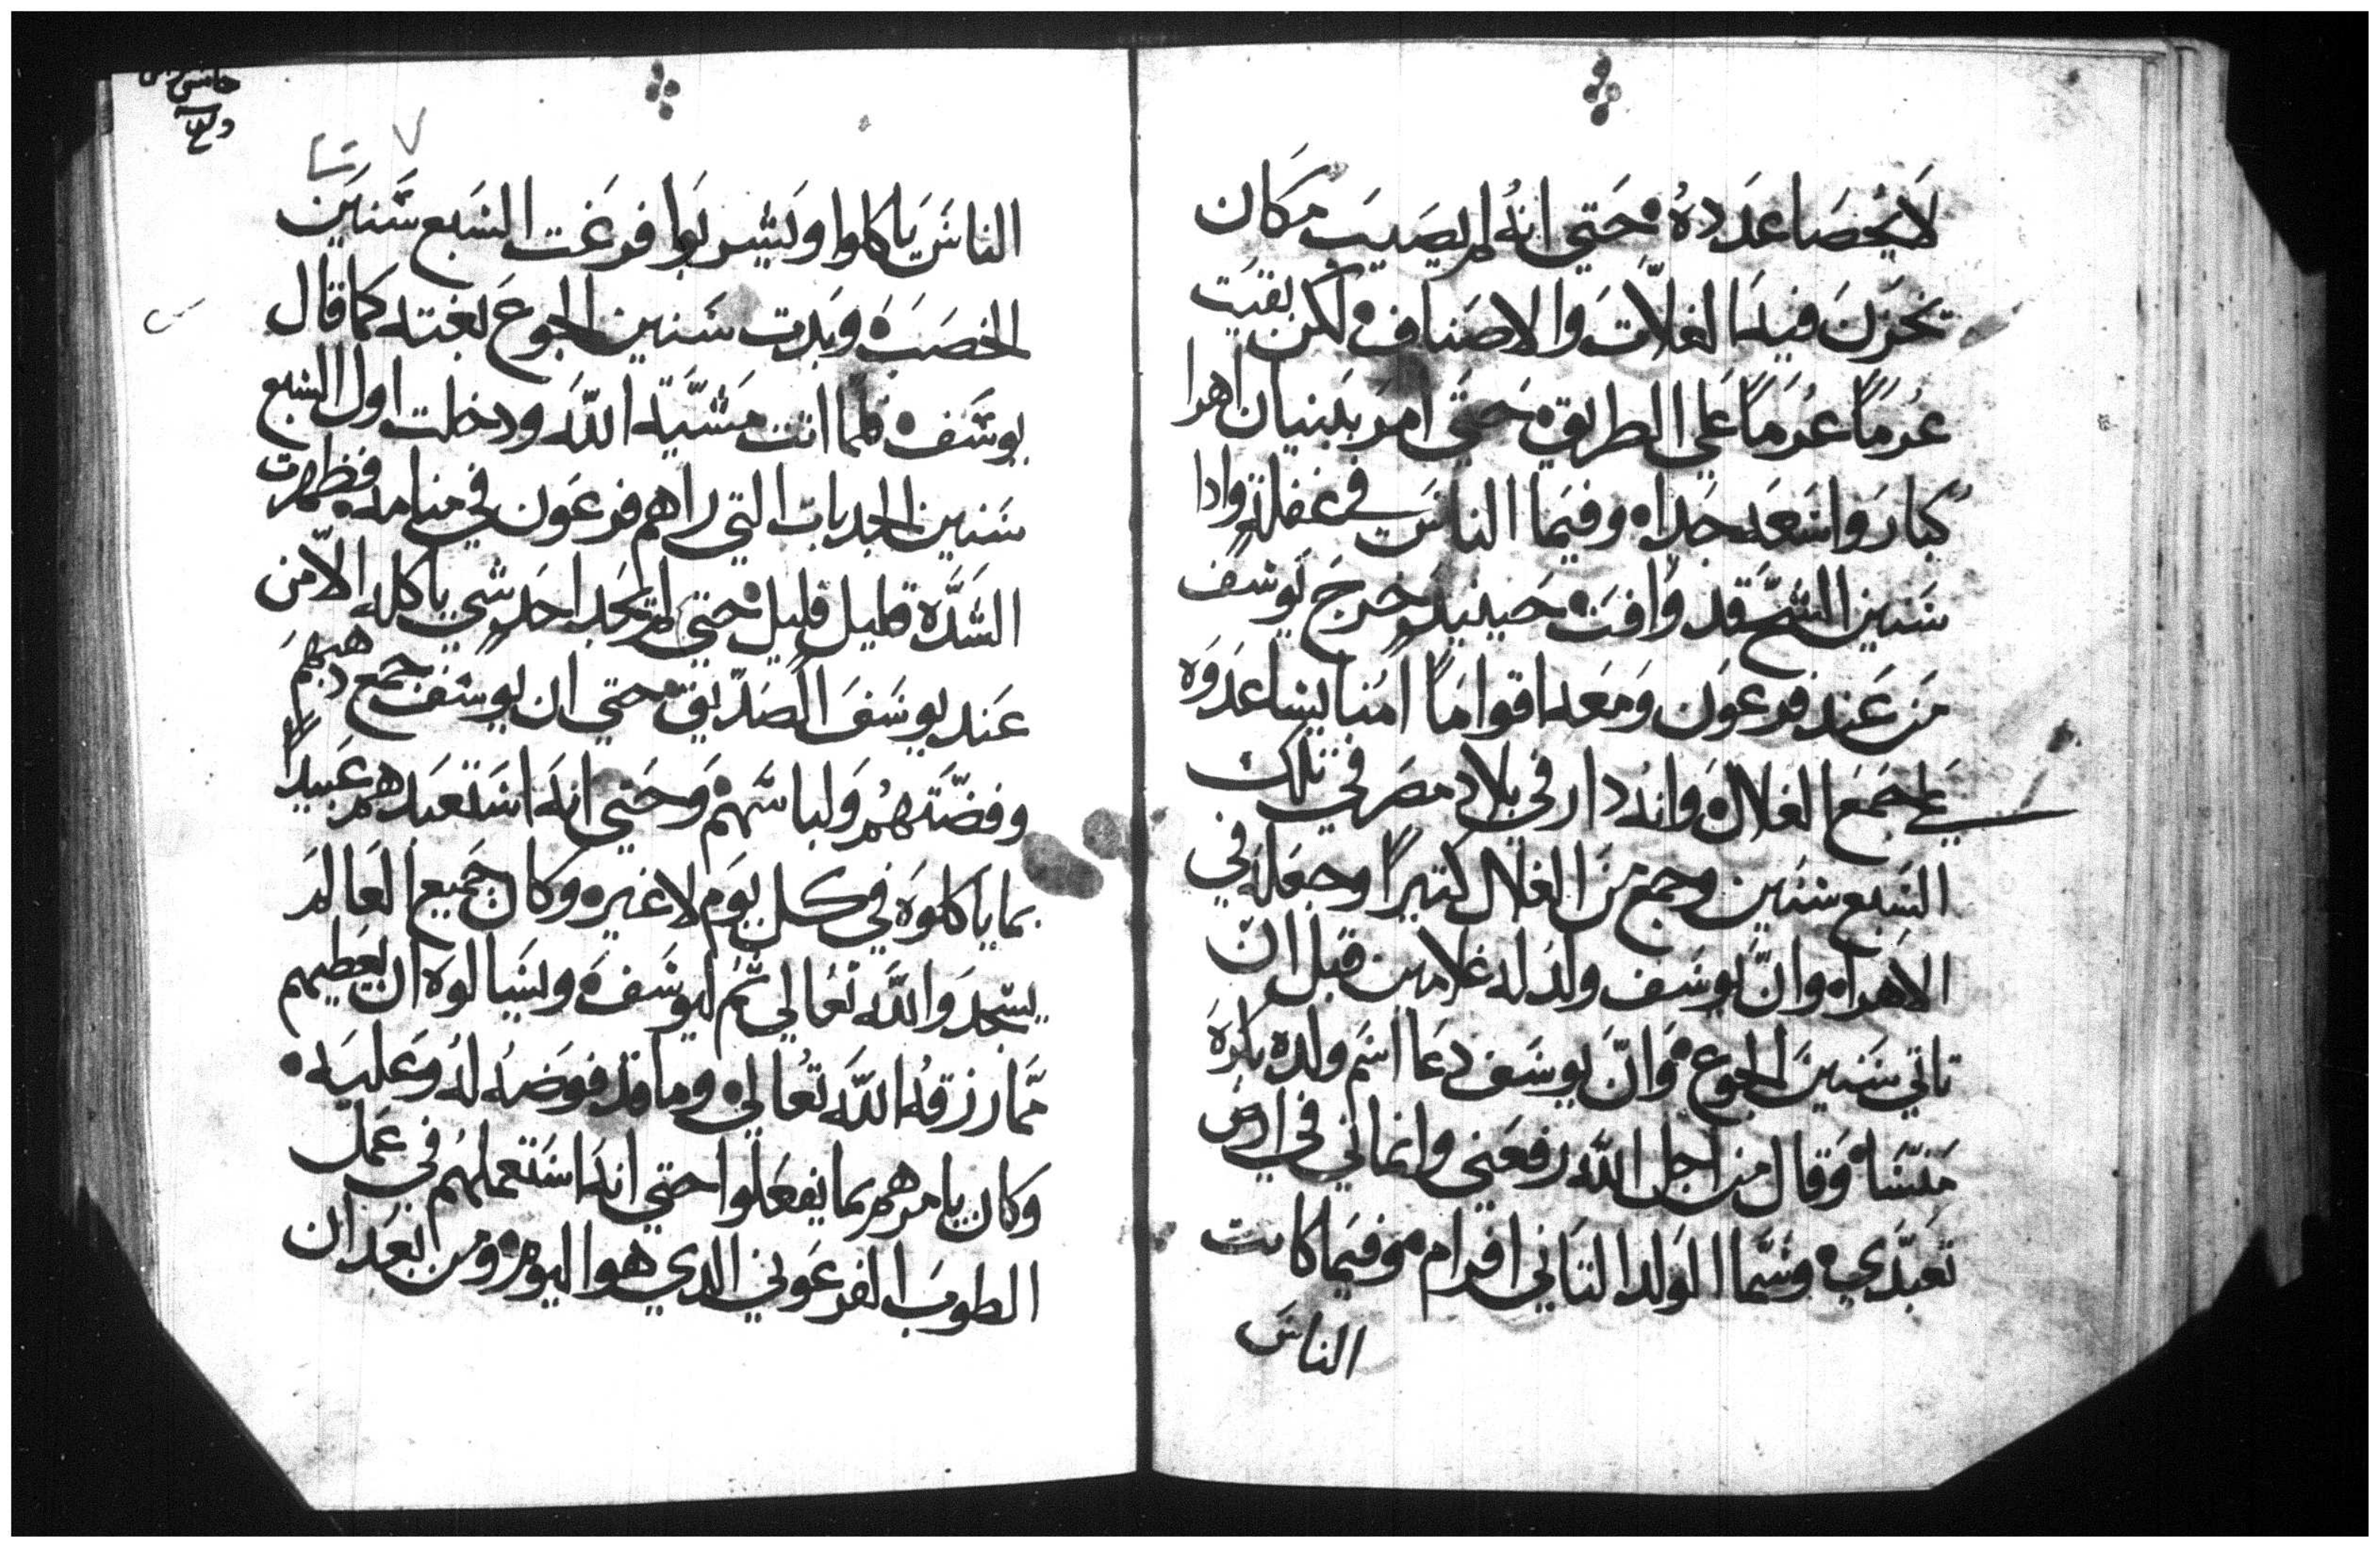 لَا يُحصَا عَدَدهُ حَتي انهُ لم يصَيَب مكَان
تخزَنَ فيهَا الغلَّاتَ والاصَناف لكن بقيَت
عرُمَاً عرُمَاً عَلي الطريق حَتيَ امرَ بَبنيان اهرا
كُبارَ واسَعَه جَدا وفيمَا الناسَ في غفلةٍ وادا
سَنين الشبَّع قد وَافتَ حَينيدٍ خرجَ يَوسَف
مَن عَند فرعَون وَمَعه اقوامَاً امَنا يسَاعَدَوَه
علي جَمَع الغلال وَانه دار في بلاد مصَر في تلك
السَبع سَنَين وجمع مَن الغلال كتيراً وجعَله في
الاهَراه وانَّ يوسَف ولدَ له غلامين قبل انَ
تاتي سَنينَ الجَوع وَانَّ يوسَف دعَا اسَم ولده بكرَهَ
مَنسَّا وَقال من اجل اللَّه رفعَني وانماني في ارض
تعَبَّدي وسَمَّا الوَلد التاني افرام وفيمَا كانت
الناسَ
الناسَ ياكلوا وَيشربَوا فرغَت السَبع سَنَيَن
الخصَبَه وَبدت سَنين الجوعَ بغته كمَا قال
يوسَف فلمَا اتت مَشيَّة اللَّه ودخلت اول السَبع
سَنين الجدبات التي راهم فرعَون في منامه فظهرت
الشَدَّه قليل قليل حتي لم يجَد احَد شي ياكله الَّا من
عَند يوسَفَ الصَدّيق حتي ان يوسَف جمع دهبهمَ
وفضّتَهمُ وَلباسَهمَ وَحتي انهَ اسَتعَبَدهم عَبيداً
بما ياكلوَه في كل يوَم لا غيره وكان جَميع العَالمَ
يسَجدَوا للَّه تعَالي ثمَ ليوسَف ويسَالوَه ان يعَطيهم
ممَّا رزقهُ اللَّه تعُالي وما قد فوَضهُ لهُ وَعليَه
وكان يامرهم بما يفعَلوا حتي انهَ اسَتعملهُم في عَمل
الطوبَ الفرعَوني الدي هوا اليوم ومن البَعَد ان